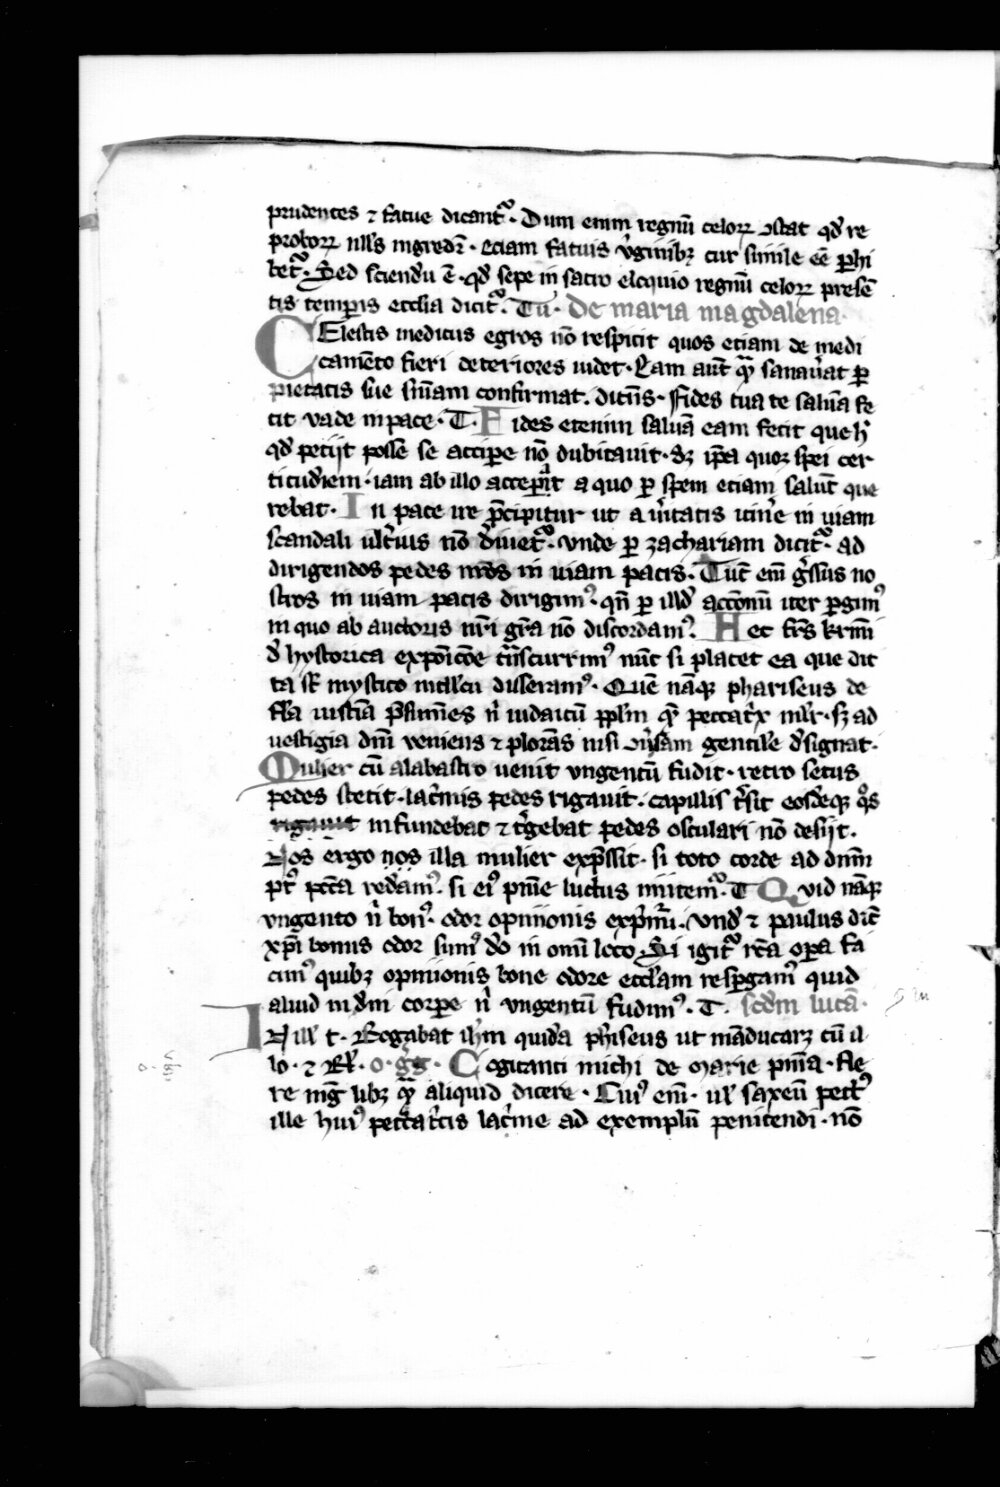 prudentes ⁊ fatue dicantr̃. Dum enim regnũ celorꝝ ↄstat qđ re
proborꝝ nll's ingredit̃. etiam fatuis v̓ginibꝫ cur simile eẽ ꝑhi
betr̃. Sed sciendũ ẽ. qđ sepe in sacro eloquio regnũ celorꝝ presẽ
tis temꝑis ecclia dicitr̃. Tu. De maria magdalena.
CElestis medicus egros nõ respicit quos etiam de medi
camẽto fieri deteriores uidet. Eam aut̃ qm̃ sanau̓at ꝑ
pietatis sue sniam confirmat. dicẽs. Fides tua te saluã fe
cit vade in pace. T. Fides etenim saluã eam fecit que h'
qđ petijt posse se acciꝑe nõ dubitauit. sꝫ ip̃a quoꝫ spei cer
titudiem. iam ab illo acceꝑat a quo ꝑ spem etiam salut̃ que
rebat. In pace ire p̃cipitur ut a u̓itatis itine in uiam
scandali ult̓ius nõ d̓iuetr̃. vnde ꝑ zachariam dicitr̃. ad
dirigendos pedes nr̃os in uiam pacis. Tũc em̃ g̓ssus no
stros in uiam pacis dirigimꝰ. qñ ꝑ illđ actionũ iter ꝑgimꝰ
in quo ab auctoris nr̃i gr̃a nõ discordamꝰ. Hec fr̃s kr̃mi
đ hystorica exposicõe t̃nscurrimꝰ nũc si placet ea que dic
ta sr̃ mystico intllc̃u disseramꝰ. Quẽ nãqꝫ phariseus de
flã iusticia p̃sumẽs ñ iudaicũ ppl̃m qm̃ peccat̓x ml̓r. sꝫ ad
uestigia dñi veniens ⁊ plorãs nisi ↄũsam gentile d̓signat.
Mulier cũ alabastro uenit vngentũ fudit. retro secus
pedes stetit. lac̓mis pedes rigauit. capillis t̓sit eosdẽqꝫ q̊s
rigauit infundebat ⁊ t̓gebat pedes osculari nõ desijt.
Nos ergo nos illa mulier exp̃ssit. si toto corde ad dñm
pꝰ pcc̃a redeamꝰ. si eiꝰ pnĩe luctus imitemr̃. T Quid nãqꝫ
vngento ñ bonꝰ. odor opinionis exp̓mit̃. Vnđ ⁊ paulus dic̃
xp̃i bonus odor sumꝰ dõ in omni loco. Si igitr̃ rc̃a oꝑa fa
cimꝰ quibꝫ opinionis bone odore eccl̃iam resꝑgamꝰ quid
aliud in dñi corꝑe ñ vngentũ fudimꝰ. T. scđm lucã.
IN ill' t. Rogabat ih̃m quidã ph̓iseus ut mãducarꝫ cũ il
lo. ⁊ Rl̃. o. gg. Cogitanti michi de marie pnĩa. fle
re mg̃ libꝫ qm̃ aliquid dicere. Cuiꝰ em̃. ul' saxeũ pectꝰ
ille huiꝰ peccat̓cis lac̓me ad exemplũ penitendi. nõ